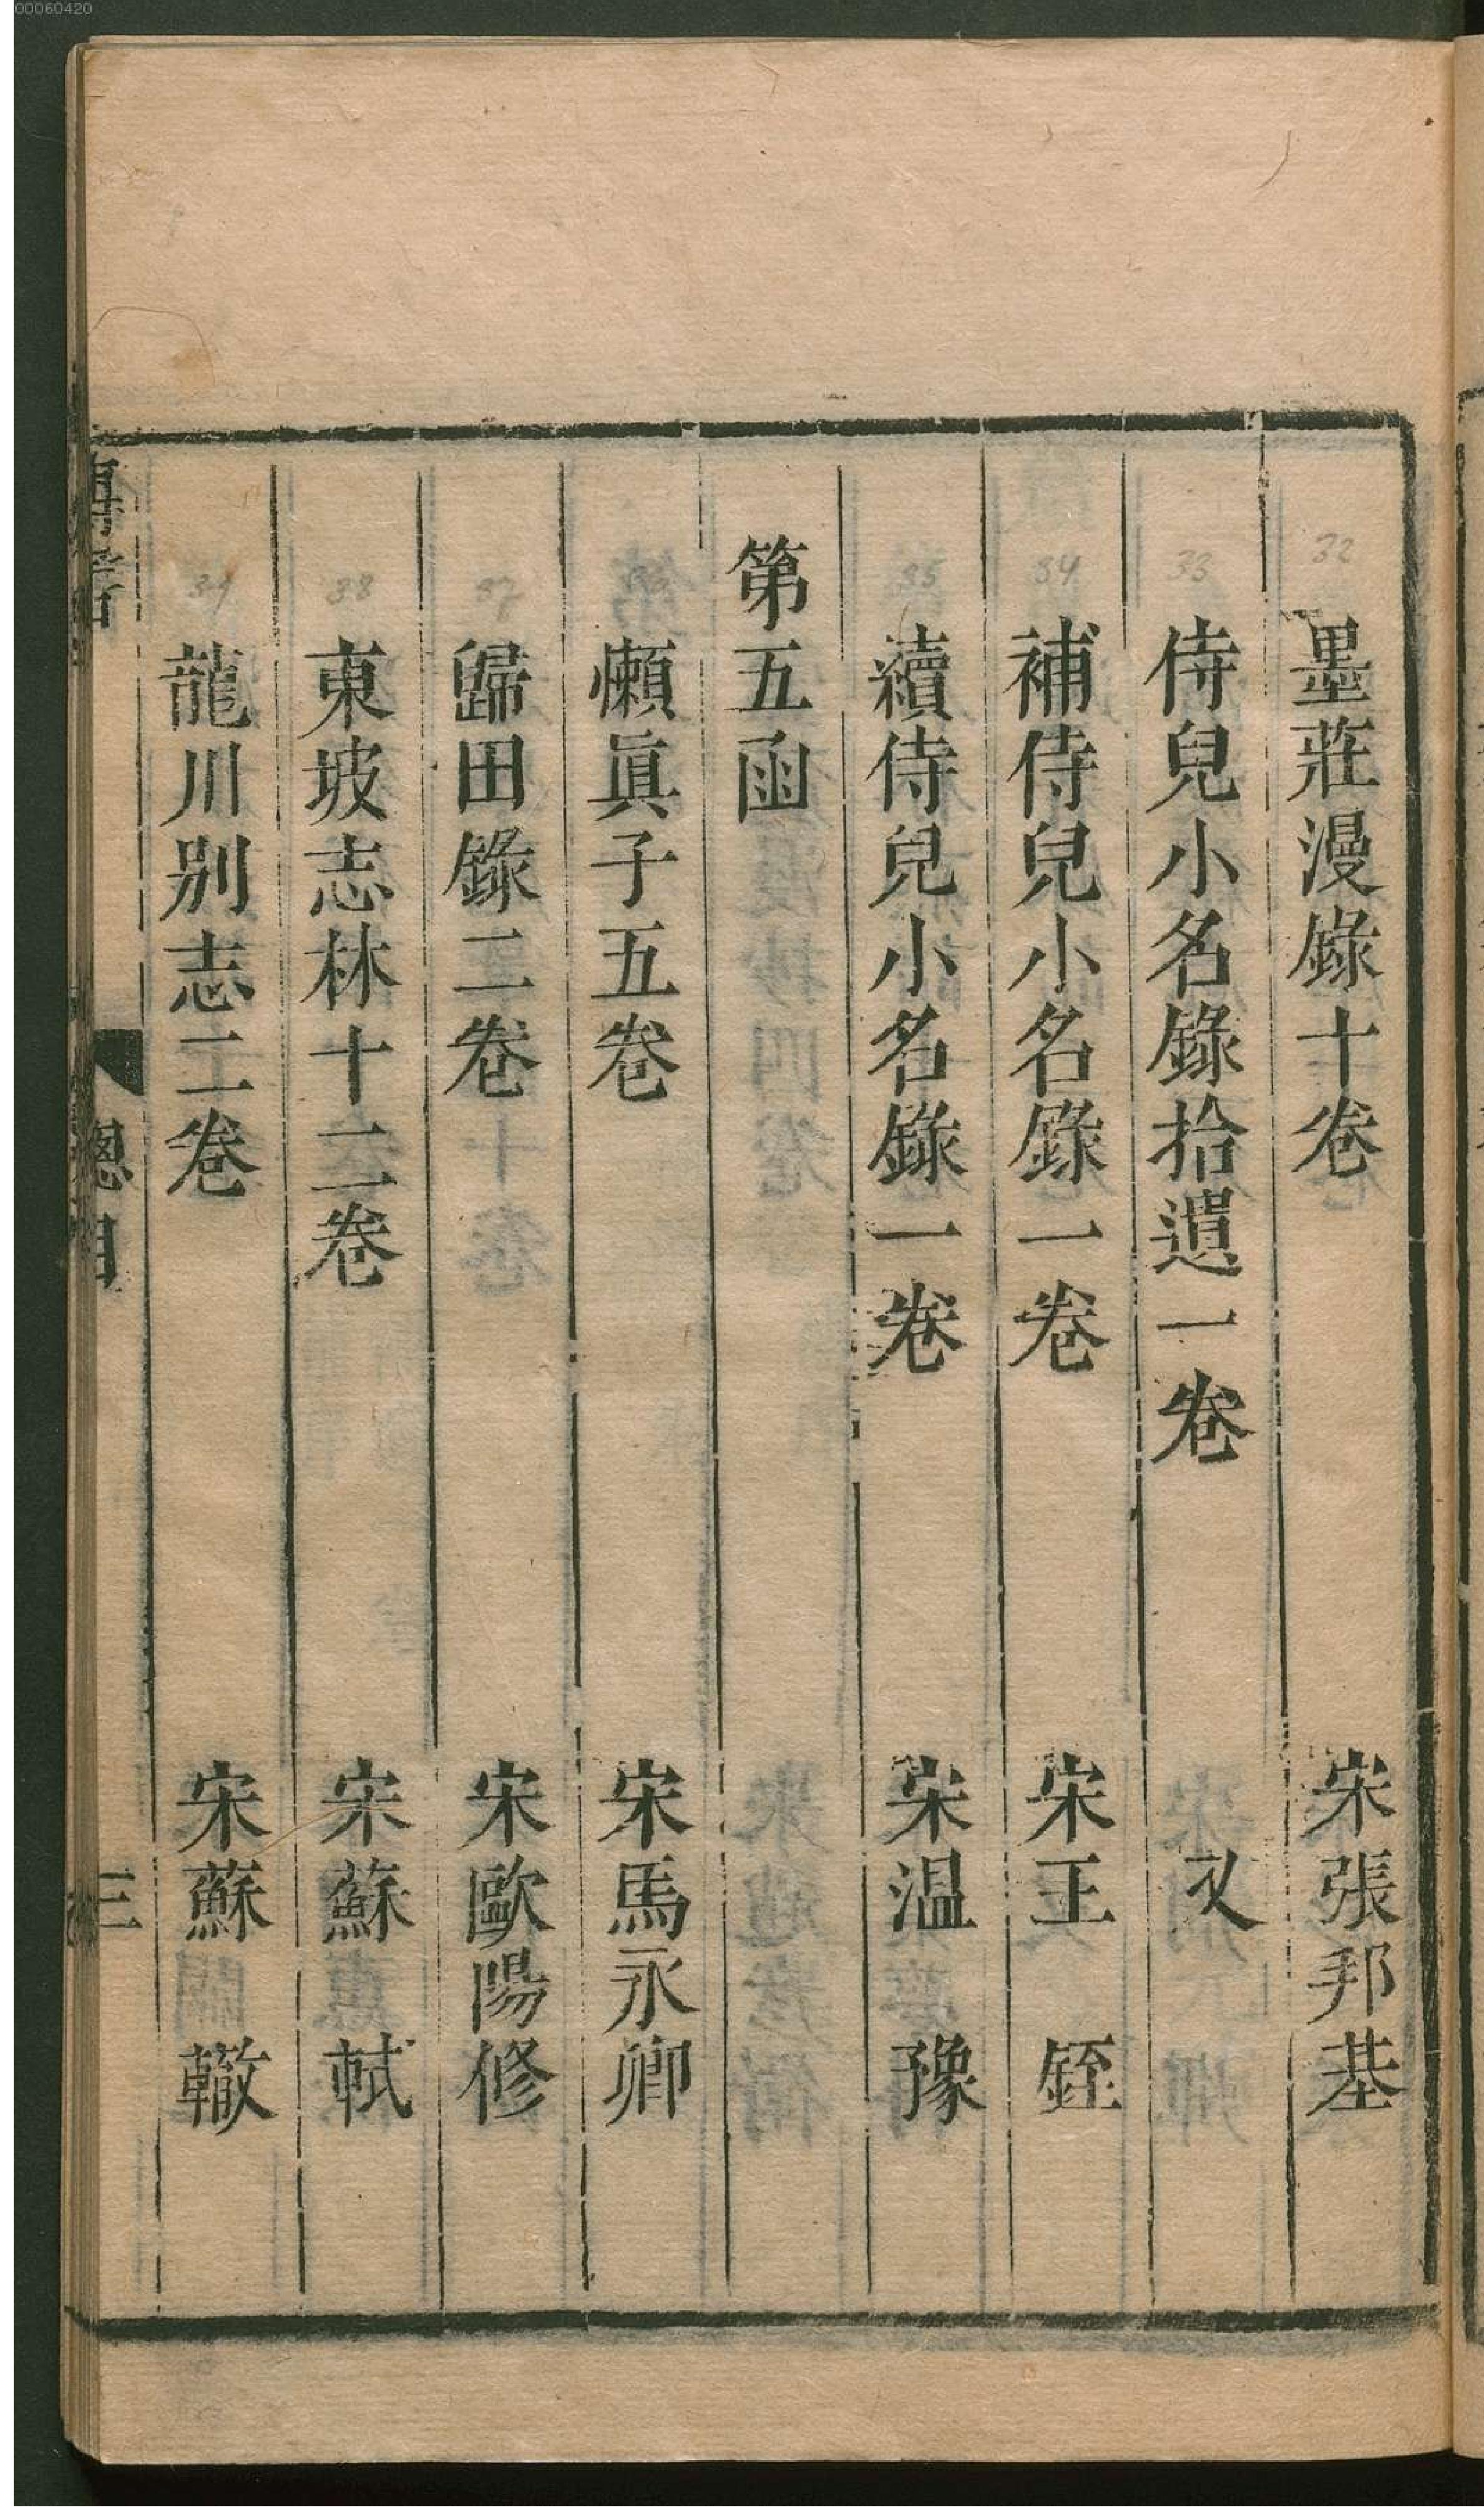 00060420
32
墨莊漫錄十卷 宋張邦基
33
侍兒小名錄拾遺一卷 又
34
補侍兒小名錄一卷 宋王 銍
35
續侍兒小名錄一卷 宋温 豫
第五函
36
懶眞子五卷 宋馬永卿
37
歸田錄二卷 宋歐陽修
38
東坡志林十二卷 宋蘇 軾
39
龍川别志二卷 宋蘇 轍
總目 三